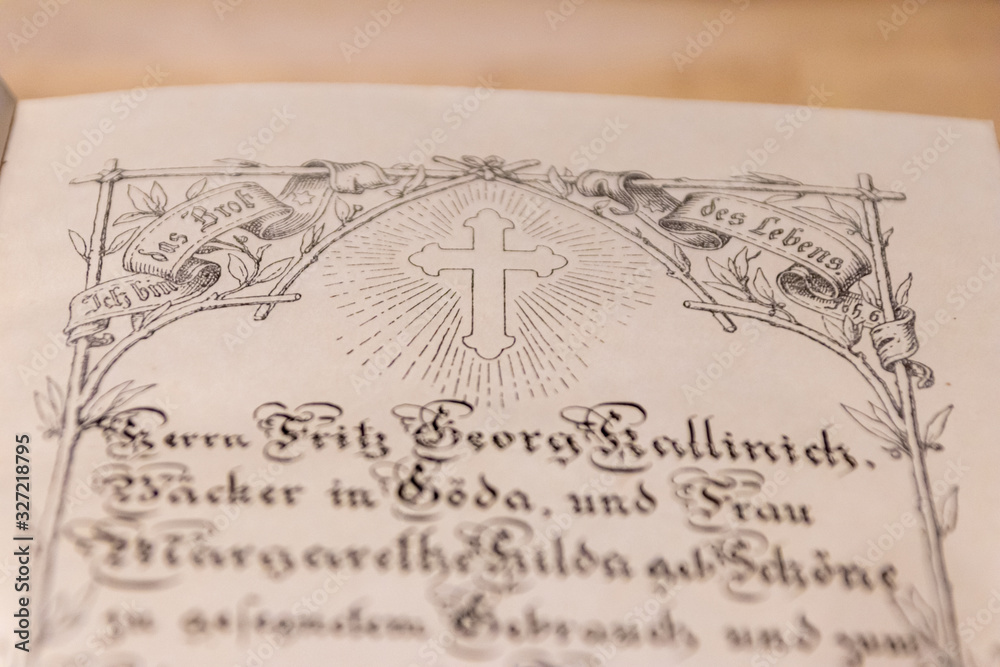 Ich bin das Brot
des Lebens
Joh. 6
Herrn Fritz Georg Kallinich,
Bäcker in Göda, und Frau
Margarethe Hilda geb Schöne
zu gesegnetem Gebrauch und zum
Adobe Stock | #327218795